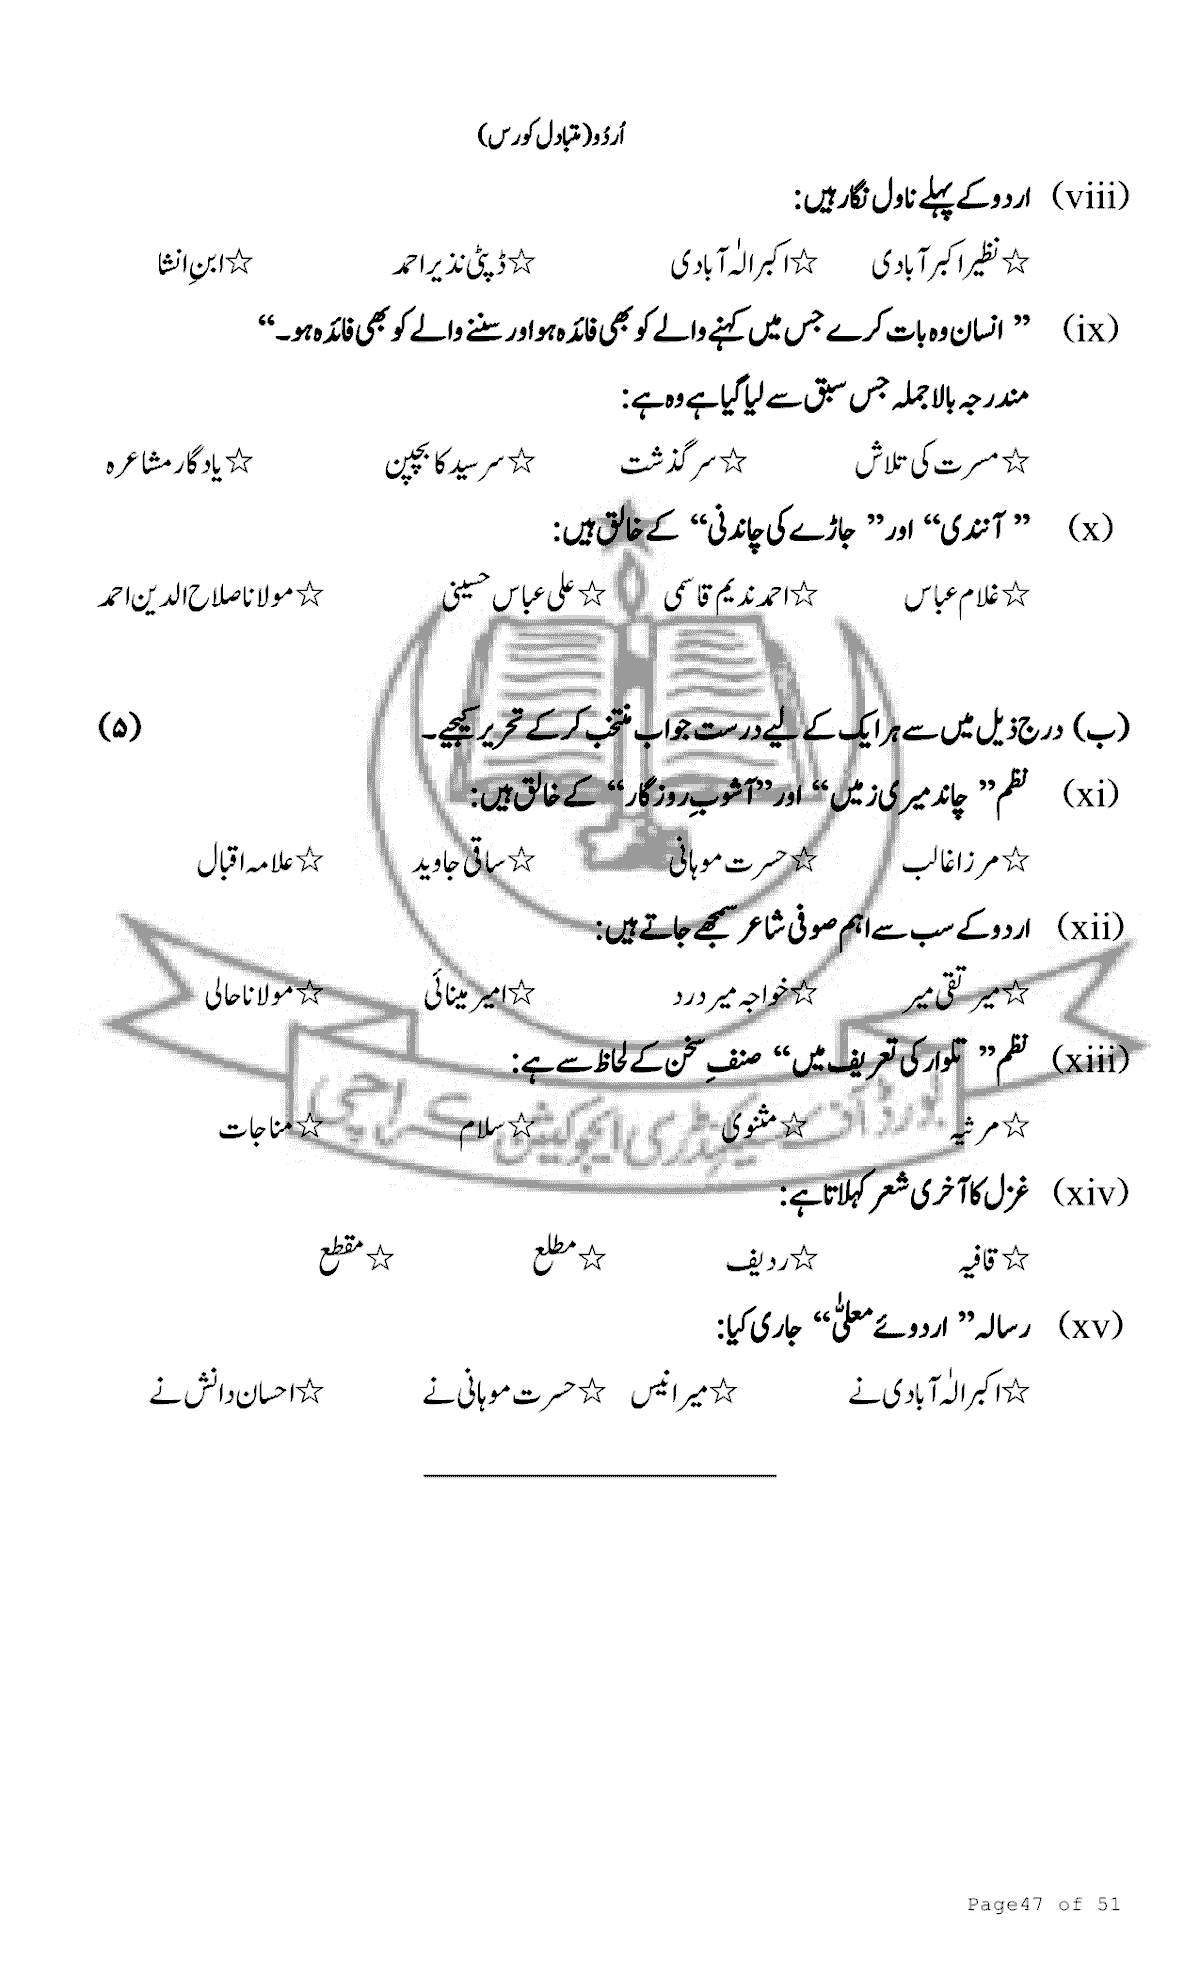 اُردُو (متبادل کورس)
(viii) اردو کے پہلے ناول نگار ہیں:
☆نظیر اکبر آبادی ☆اکبر الٰہ آبادی ☆ڈپٹی نذیر احمد ☆ابنِ انشا
(ix) ” انسان وہ بات کرے جس میں کہنے والے کو بھی فائدہ ہو اور سننے والے کو بھی فائدہ ہو۔“
مندرجہ بالا جملہ جس سبق سے لیا گیا ہے وہ ہے:
☆مسرت کی تلاش ☆سرگذشت ☆سرسید کا بچپن ☆یادگار مشاعرہ
(x) ” آنندی“ اور ” جاڑے کی چاندنی“ کے خالق ہیں:
☆غلام عباس ☆احمد ندیم قاسمی ☆علی عباس حسینی ☆مولانا صلاح الدین احمد
(ب) درج ذیل میں سے ہر ایک کے لیے درست جواب منتخب کر کے تحریر کیجیے۔ (۵)
(xi) نظم ” چاند میری زمیں“ اور ”آشوبِ روزگار“ کے خالق ہیں:
☆مرزا غالب ☆حسرت موہانی ☆ساقی جاوید ☆علامہ اقبال
(xii) اردو کے سب سے اہم صوفی شاعر سمجھے جاتے ہیں:
☆میر تقی میر ☆خواجہ میر درد ☆امیر مینائی ☆مولانا حالی
(xiii) نظم ” تلوار کی تعریف میں“ صنفِ سخن کے لحاظ سے ہے:
☆مرثیہ ☆مثنوی ☆سلام ☆مناجات
بورڈ آف سیکنڈری ایجوکیشن کراچی
(xiv) غزل کا آخری شعر کہلاتا ہے:
☆قافیہ ☆ردیف ☆مطلع ☆مقطع
(xv) رسالہ ” اردوئے معلیٰ“ جاری کیا:
☆اکبر الٰہ آبادی نے ☆میر انیس ☆حسرت موہانی نے ☆احسان دانش نے
Page47 of 51